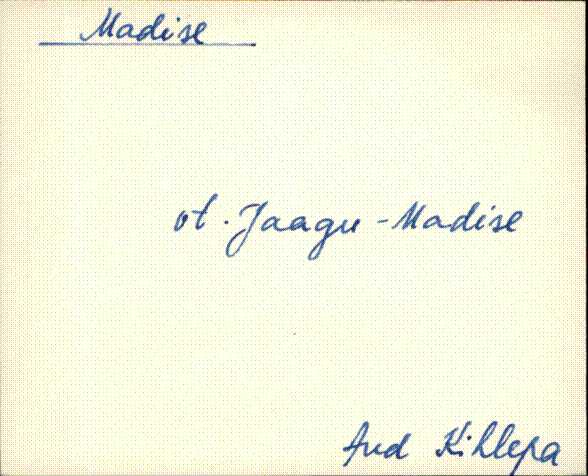 Madise
vt. Jaagu-Madise
Aud Kihlepa